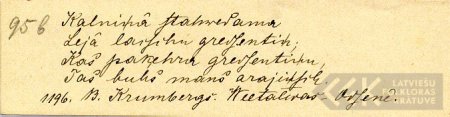 956 Kalniņâ stahwedama
Lejâ laischu gredsentiņ;
Kas pakehra gredsentiņu,
Tas buhs mans arajiņsch.
1196. B. Krumbergs. Weetalwas-Odsenê.
LATVIEŠU
FOLKLORAS
KRĀTUVE